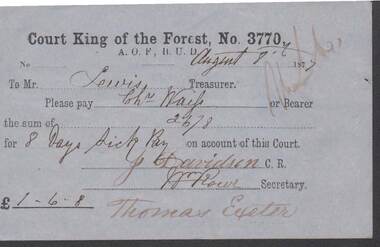 Court King of the Forest, No. 3770,
A. O. F., B. U. D.
No August 8th 1877
To Mr. Lewis Treasurer.
Please pay Chs Waife or Bearer
the sum of 26/8
for 8 Days Sick Pay on account of this Court.
J Davidson C. R.
W Rowe Secretary.
£ 1-6-8
Thomas Exeter